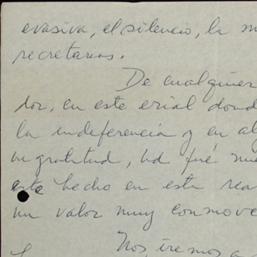 evasiva, el silencio, la m
secretarias.
De cualquier
dor, en este erial dond
la indeferencia y en al
ingratitud, Ud fué nue
este hecho en esta rea
un valor muy conmove
Nos iremos a